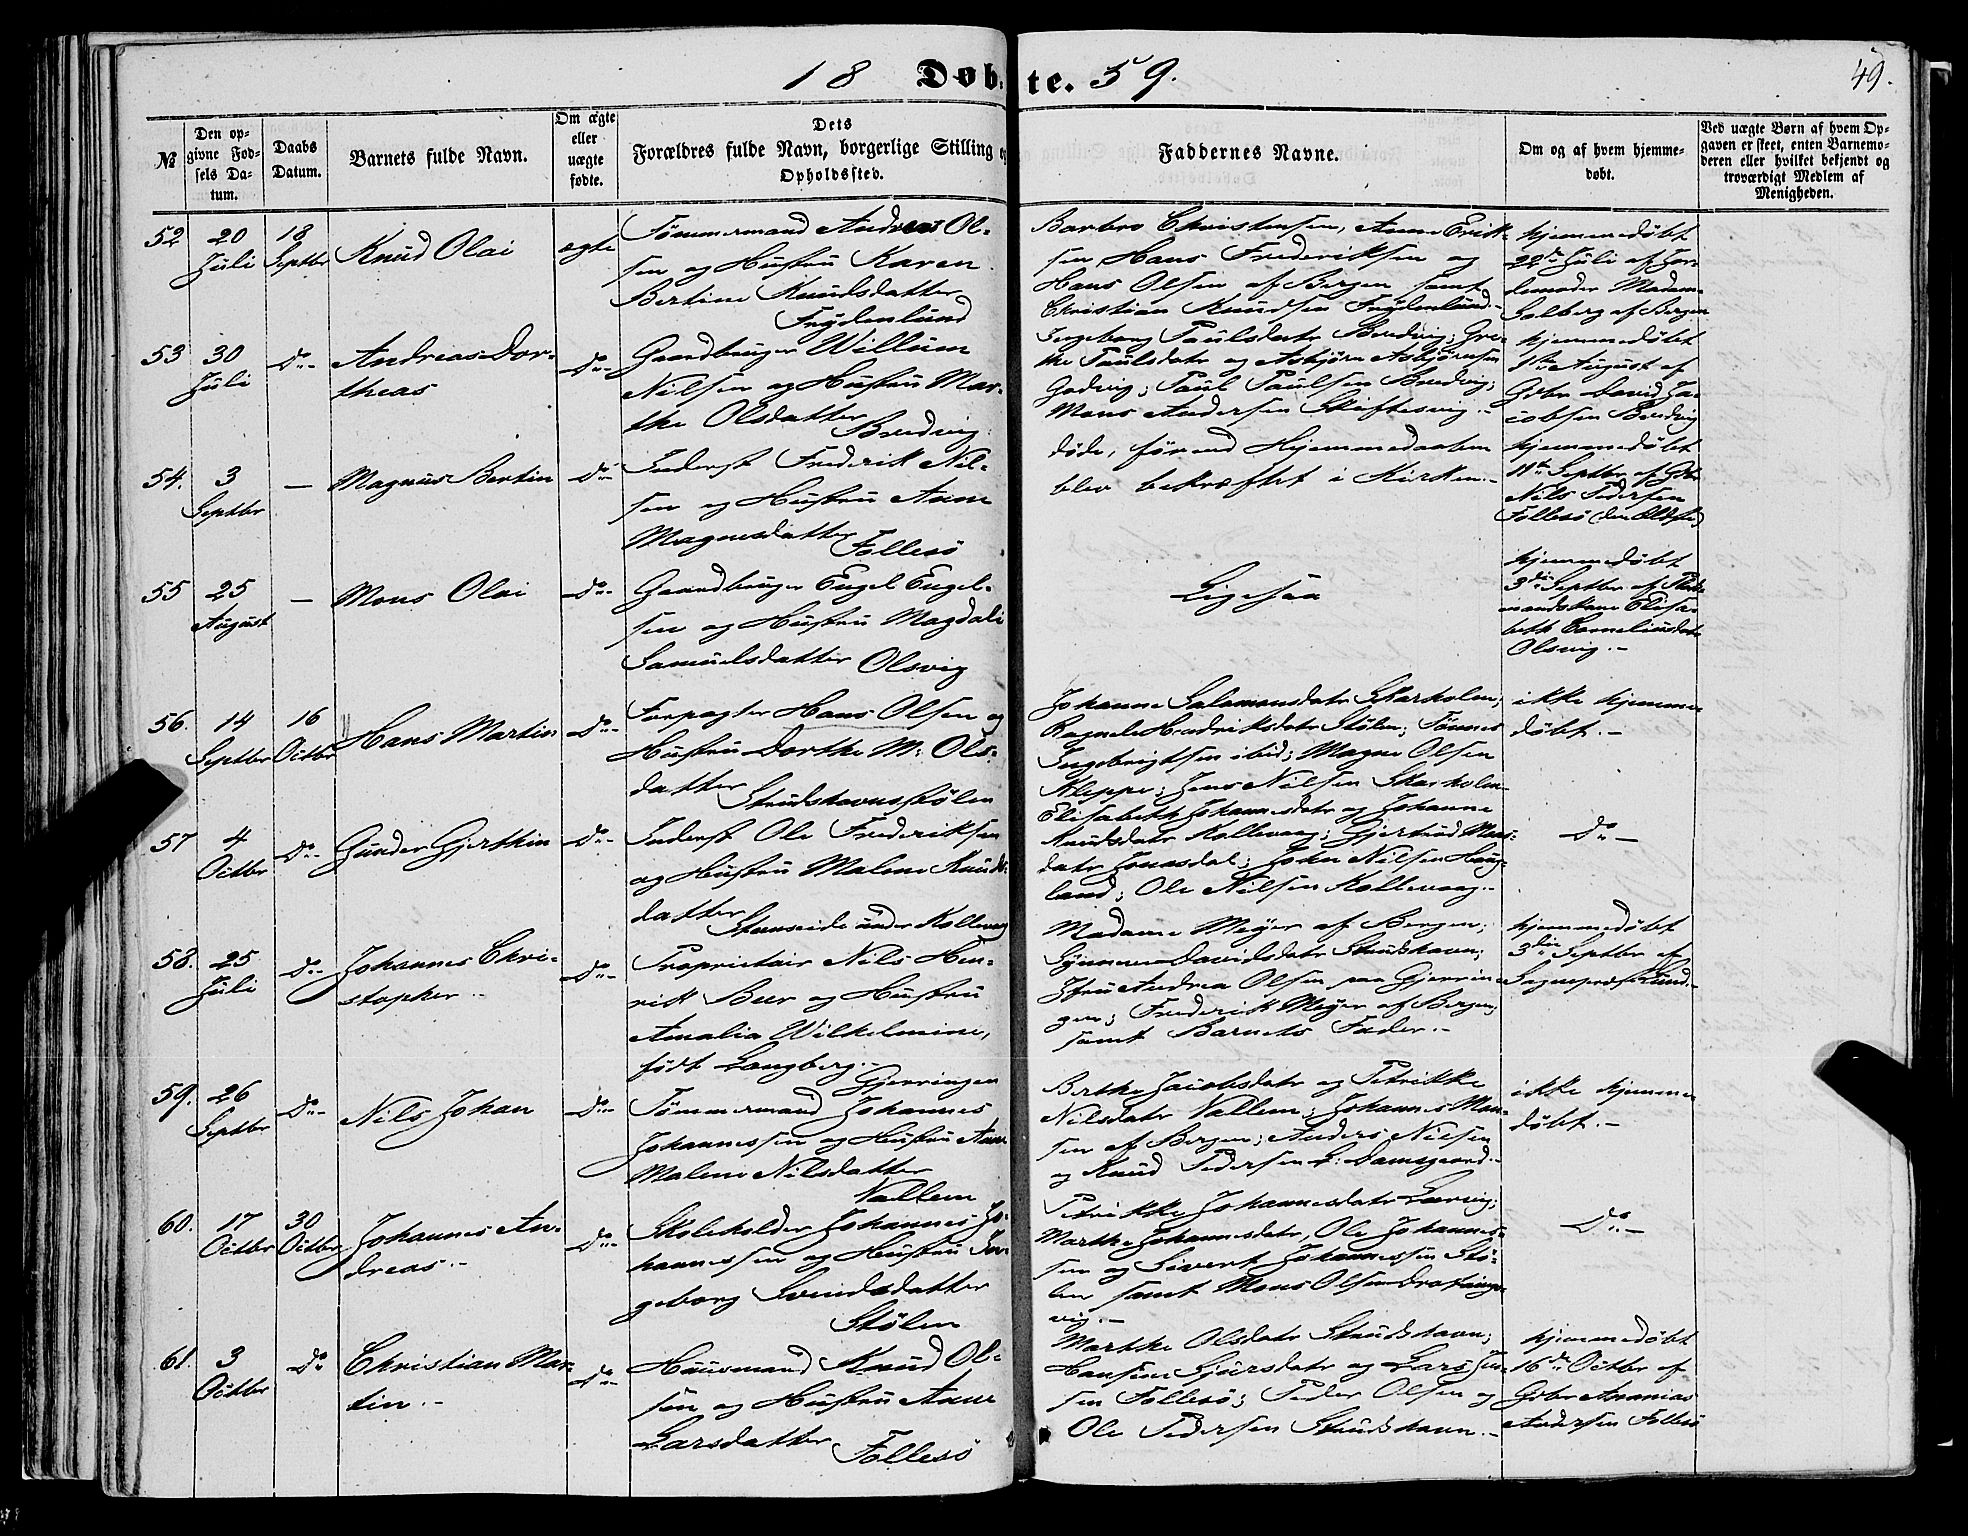 18 Døbte. 59.
49.
№
Den opgivne Fødsels Datum.
Daabs Datum.
Barnets fulde Navn.
Om ægte eller uægte fødte.
Dets Forældres fulde Navn, borgerlige Stilling og Opholdssted.
Faddernes Navne.
Om og af hvem hjemmedøbt.
Ved uægte Børn af hvem Opgaven er skeet, enten Barnemoderen eller hvilket bekjendt og troværdigt Medlem af Menigheden.
52
20 Juli
18 Septbr
Knud Olai
ægte
Tömmermand Andreas Ol-
sen og Hustru Karen
Bertine Knudsdatter
Frydenlund
Barbro Christensen, Anne Erik-
sen Hans Frederiksen og
Hans Olsen af Bergen samt
Christian Knudsen Frydenlund.-
hjemmedøbt
22de Juli af Jor-
demoder Madam
Solberg af Bergen
53
30 Juli
Do-
Andreas Dor-
theas
Do-
Gaardbruger Willum
Nilsen og Hustru Mar-
the Olsdatter
Bredvig
Ingeborg Paulsdatr Bredvig; Gre-
the Paulsdatr og Asbjørn Asbjørnsen
Godvig; Paul Paulsen Bredvig;
Mons Andersen Skiftesvig.-
hjemmedøbt
1ste August af
Gbr David Ja-
cobsen Bredvig
54.
3 Septbr
-
Magnus Bertin
Do-
Inderst Frederik Nil-
sen og Hustru Anne
Magnesdatter
Follesö
døde, förend Hjemmedaaben
blev bekræftet i Kirken.-
hjemmedøbt
11te Septbr af Gbr
Nils Pedersen
Follesö (den Ældste)
55
25 August
-
Mons Olai
Do-
Gaardbruger Engel Engel-
sen og Hustru Magdali
Samuelsdatter Olsvig
Ligesaa
hjemmedøbt
3die Septbr af
mandskone Elisa-
beth Corneliusdatr
Olsvig.-
56.
14 Septbr
16 Octbr
Hans Martin
Do-
Forpagter Hans Olsen og
Hustru Dorthe M: Ols-
datter
Strudshavnstölen
Johanne Salamonsdatr Skarholm;
Ragnele Hendriksdatr Stölen; Tönnes
Ingebrigtsen ibid; Magne Olsen
Kleppe; Jens Nilsen Skarholm
ikke hjemme-
døbt.-
57
4 Octbr
Do-
Gunder Gjerthin
Do-
Inderst Ole Frederiksen
og Hustru Malene Knuds-
datter
Steenseide under Kollevaag
Elisabeth Johannesdatr og Johanne
Knudsdatr Kollevaag; Gjertrud Mons-
datr Jonasdal; John Nilsen Haug-
land; Ole Nilsen Kollevaag.-
Do-
58.
25 Juli
Do-
Johannes Chri-
stopher.-
Do-
Proprietair Nils Hen-
rik Beer og Hustru
Amalia Wilhelmine,
födt Langberg.-
Gjerringen
Madame Meyer af Bergen;
Synneve Davidsdatr Strudshavn;
Jfru Andrea Olsen paa Gjerrin-
gen; Frederik Meyer af Bergen;
samt Barnets Fader.-
hjemmedøbt
3die Septbr af
Sognepræst Lund.-
59.
26 Septbr
Do-
Nils Johan
Do-
Tömmermand Johannes
Johannessen og Hustru Anne
Malene Nilsdatter
Vallem
Berthe Jacobsdatr og Petrikke
Nilsdatr Vallem; Johannes Mon-
sen af Bergen; Anders Nilsen
og Knud Pedersen L: Damsgaard.-
ikke hjemme-
døbt.-
60.
17 Octbr
30 Octbr
Johannes An-
dreas.-
Do-
Skoleholder Johannes Jo-
hannessen og Hustru In-
geborg Svendsdatter
Stölen
Petrikke Johannesdatr Lervig;
Marthe Johannesdatr, Ole Johannes-
sen og Sivert Johannessen Stö-
len samt Mons Olsen Drotninge-
vig.-
Do-
61.
3 Octbr
Do
Christian Mar-
tin.-
Do-
Huusmand Knud Ol-
sen og Hustru Anne
Larsdatter
Follesö
Marthe Olsdatr Strudshavn;
Hansine Sjursdatr og Lars Jen-
sen Follesö; Peder Olsen og
Ole Pedersen Strudshavn.-
hjemmedøbt
16de Octbr af
Gbr Ananias
Andersen Follesö